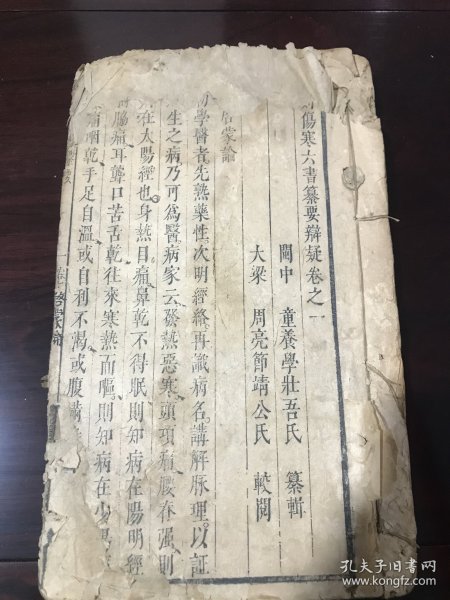 傷寒六書纂要辯疑卷之一
閩中 童養學壯吾氏 纂輯
大梁 周亮節靖公氏 較閲
啓蒙論
初學醫者先熟藥性次明經絡再識病名講解脉理以証
生之病乃可為醫病家云發熱惡寒頭項痛腰脊强則
在太陽經也身熱目痛鼻乾不得眠則知病在陽明經
脇痛耳聾口苦舌乾往來寒熱而嘔則知病在少陽
咽乾手足自溫或自利不渴或腹滿
孔夫子旧书网
www.kongfz.com